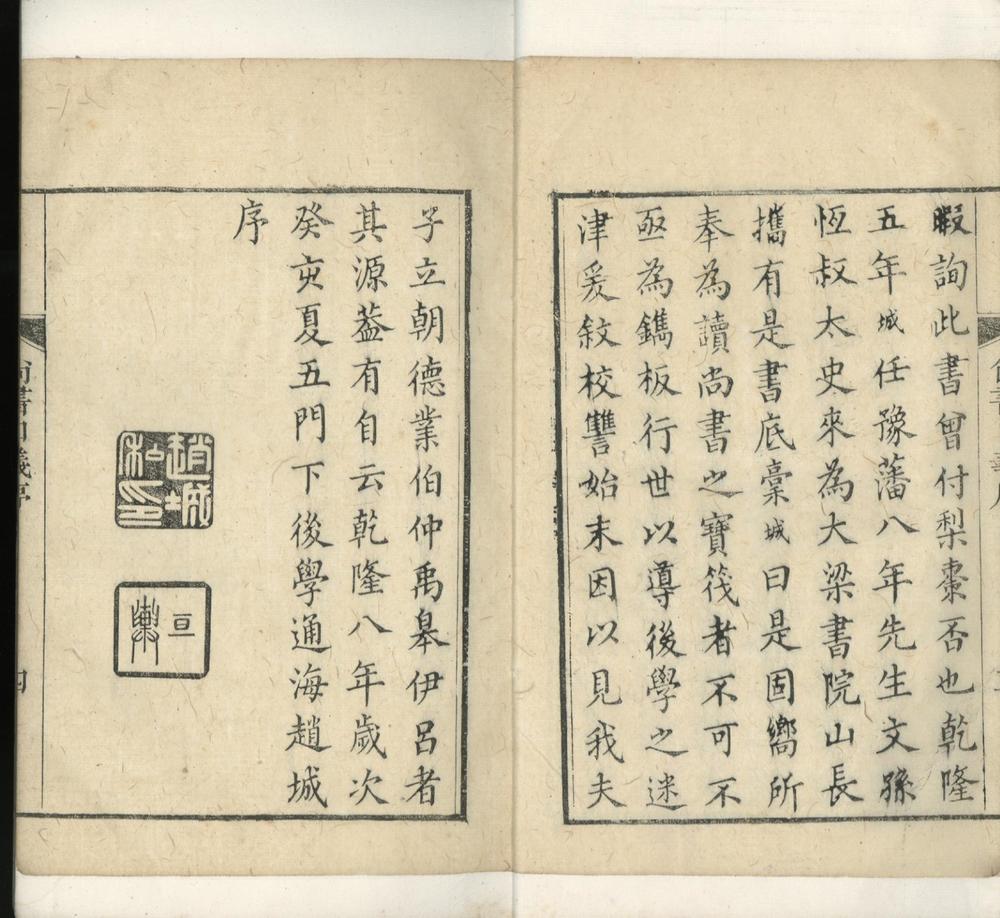 暇詢此書曾付梨棗否也乾隆
五年城任豫藩八年先生文孫
恆叔太史來為大梁書院山長
攜有是書底稾城曰是固嚮所
奉為讀尚書之寶筏者不可不
亟為鐫板行世以導後學之迷
津爰敘校讐始末因以見我夫
子立朝德業伯仲禹皋伊呂者
其源葢有自云乾隆八年歲次
癸亥夏五門下後學通海趙城
序
趙城
私印
亘
輿
尚書口義序
四